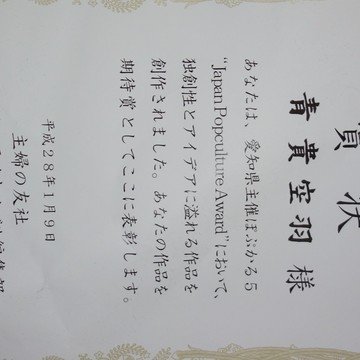 賞状
青貴空羽 様
あなたは、愛知県主催ぽぷかる5
“Japan Popculture Award”において、
独創性とアイデアに溢れる作品を
創作されました。あなたの作品を
期待賞としてここに表彰します。
平成28年1月9日
主婦の友社